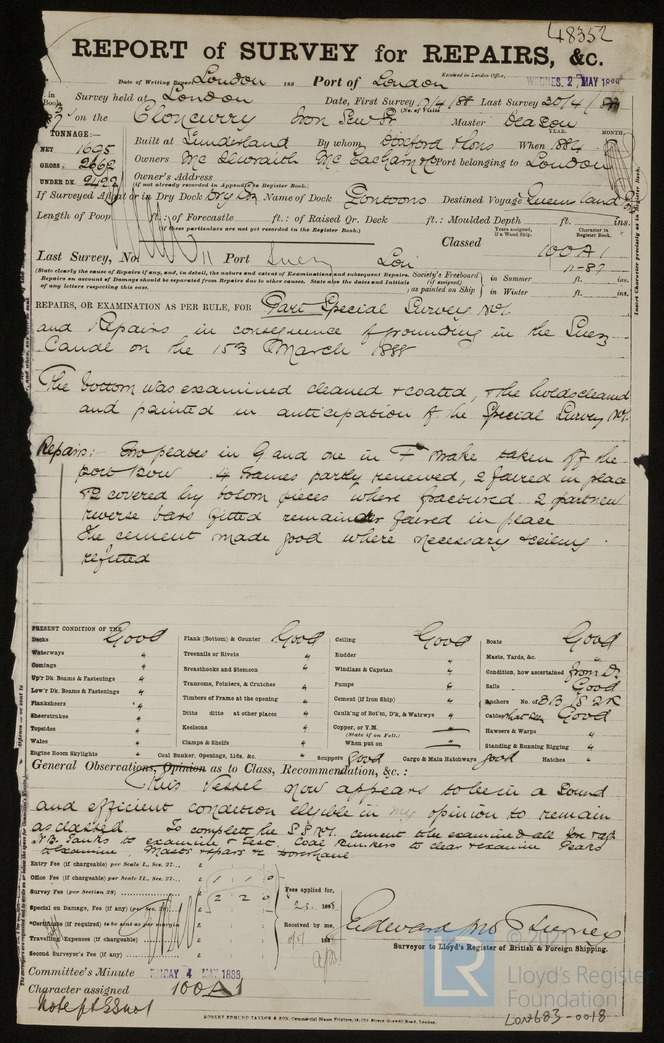 48352
REPORT of SURVEY for REPAIRS, &c.
Date of Writing Report London 188 Port of London Received in London Office, WEDNES. 2 MAY 1888
in Book Survey held at London Date, First Survey 17/4/88 Last Survey 30/4/88
(No. of Visits)
on the Cloncurry Iron Scw Sr Master Deacon
TONNAGE:— YEAR. MONTH.
NET 1695 Built at Sunderland By whom Doxford & Sons When 1884
GROSS 2662 Owners McIlwraith McEacharn & Co Port belonging to London
UNDER DK. 2492 Owner's Address
(if not already recorded in Appendix to Register Book.)
If Surveyed Afloat or in Dry Dock Dry Dk Name of Dock Pontoons Destined Voyage Queensland
Length of Poop ft.: of Forecastle ft.: of Raised Qr. Deck ft.: Moulded Depth ft. ins.
(If these particulars are not yet recorded in the Register Book.)
Years assigned, if a Wood Ship. Character in Register Book.
Classed 100A1
11-87
Last Survey, No. 11 Port Suez Lon
(State clearly the cause of Repairs if any, and, in detail, the nature and extent of Examinations and subsequent Repairs.
Repairs on account of Damage should be separated from Repairs due to other causes. State also the dates and Initials
of any letters respecting this case.
Society's Freeboard (if assigned) as painted on Ship in Summer ft. ins.
in Winter ft. ins.
REPAIRS, OR EXAMINATION AS PER RULE, FOR Part Special Survey No1.
and Repairs in consequence of grounding in the Suez
Canal on the 15th March 1888
The bottom was examined cleaned & coated, & the holds cleaned
and painted in anticipation of the Special Survey No1.
Repairs: Two plates in G and one in F strake taken off the
port bow 4 frames partly renewed, 2 faired in place
& 2 covered by bosom pieces where fractured 2 part new
reverse bars fitted remainder faired in place
The cement made good where necessary & ceiling
refitted
PRESENT CONDITION OF THE
Decks Good
Waterways "
Comings "
Up'r Dk. Beams & Fastenings "
Low'r Dk. Beams & Fastenings "
Planksheers "
Sheerstrakes "
Topsides "
Wales "
Engine Room Skylights "
Plank (Bottom) & Counter Good
Treenails or Rivets "
Breasthooks and Stemson "
Transoms, Pointers, & Crutches "
Timbers of Frame at the opening "
Ditto ditto at other places "
Keelsons "
Clamps & Shelfs "
Coal Bunker, Openings, Lids, &c. "
Ceiling Good
Rudder "
Windlass & Capstan "
Pumps "
Cement (if Iron Ship) "
Caulk'ng of Bot'm, D'k, & Watrwys "
Copper, or Y.M. —
(State if on Felt.)
When put on —
Scuppers Good Cargo & Main Hatchways good
Boats Good
Masts, Yards, &c. "
Condition, how ascertained from Dk
Sails Good
Anchors No. of 3B 1S 2K
Cables Good
Hawsers & Warps "
Standing & Running Rigging "
Hatches "
General Observations, Opinion as to Class, Recommendation, &c.:
This Vessel now appears to be in a sound
and efficient condition eligible in my opinion to remain
as classed. To complete the S.S. No1. cement to be examined & all
N.B. Tanks to examine & test. Coal Bunkers to clear & examine Gears
to examine Masts
Entry Fee (if chargeable) per Scale I., Sec. 27... £
Office Fee (if chargeable) per Scale II., Sec. 27... £ 1 1 0
Survey Fee (per Section 28) £ 2 2 0
Special on Damage, Fee (if any) £
*Certificate (if required) to be sent as per margin £
Travelling Expenses (if chargeable) £
Second Surveyor's Fee (if any) £
Fees applied for,
2.5. 1888
Received by me,
188
Surveyor to Lloyd's Register of British & Foreign Shipping.
Committee's Minute FRIDAY 4 MAY 1888
Character assigned 100A1
Note pt SS No1
ROBERT EDMUND TAYLOR & SON, Commercial Steam Printers, 19, Old Street, Goswell Road, London.
© 2021
LR
Lloyd's Register
Foundation
LON683-0018